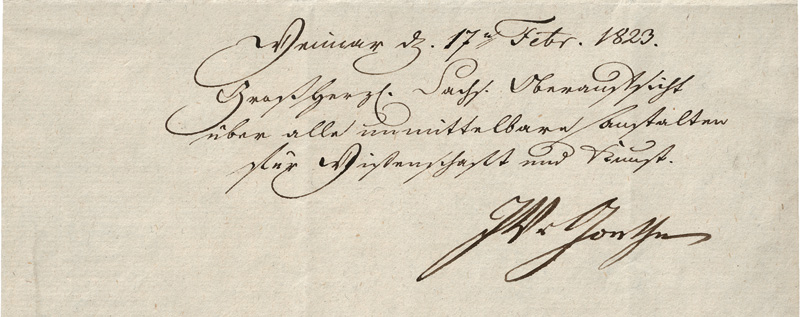 Weimar d. 17n Febr. 1823.
Großherzl. Sächs. Oberaufsicht
über alle unmittelbare Anstalten
für Wißenschaft und Kunst.
JWvGoethe